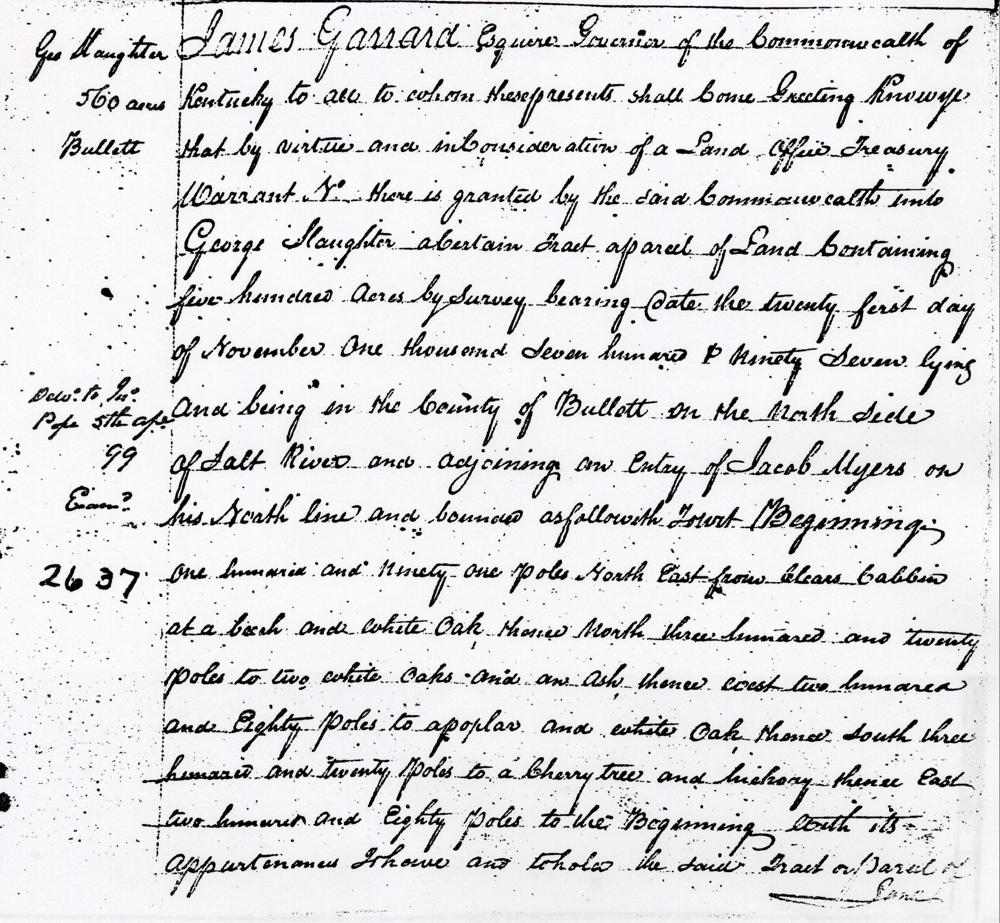 Geo Slaughter
560 acres
Bullett
James Garrard Esquire Governor of the Commonwealth of
Kentucky to all to whom these presents shall Come Greeting Know ye
that by virtue and in Consideration of a Land Office Treasury
Warrant No. there is granted by the said Commonwealth unto
George Slaughter a Certain Tract a parcel of Land Containing
five hundred Acres by Survey bearing Date the twenty first day
of November One thousand Seven hundred & Ninety Seven lying
Deld. to Jno.
Pope 5th
99
And being in the County of Bullett on the North Side
of Salt River and adjoining an Entry of Jacob Myers on
Examd.
his North line and bounded as followeth Towit Beginning
2637
One hundred and Ninety one Poles North East from Clears Cabbin
at a beech and white Oak thence North three hundred and twenty
Poles to two white Oaks and an Ash thence west two hundred
and Eighty Poles to a poplar and white Oak thence South three
hundred and twenty Poles to a Cherry tree and hickory thence East
two hundred and Eighty Poles to the Beginning with its
Appurtenances To have and to hold the said Tract or Parcel of
Land